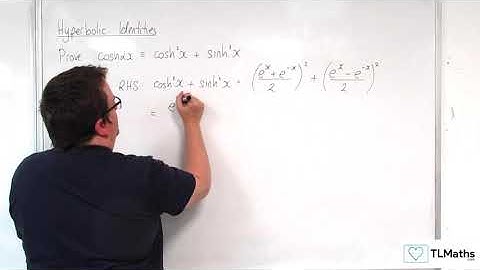 Hyperbolic Identities
Prove cosh2x ≡ cosh²x + sinh²x
RHS cosh²x + sinh²x = (eˣ + e⁻ˣ / 2)² + (eˣ − e⁻ˣ / 2)²
= e
TLMaths